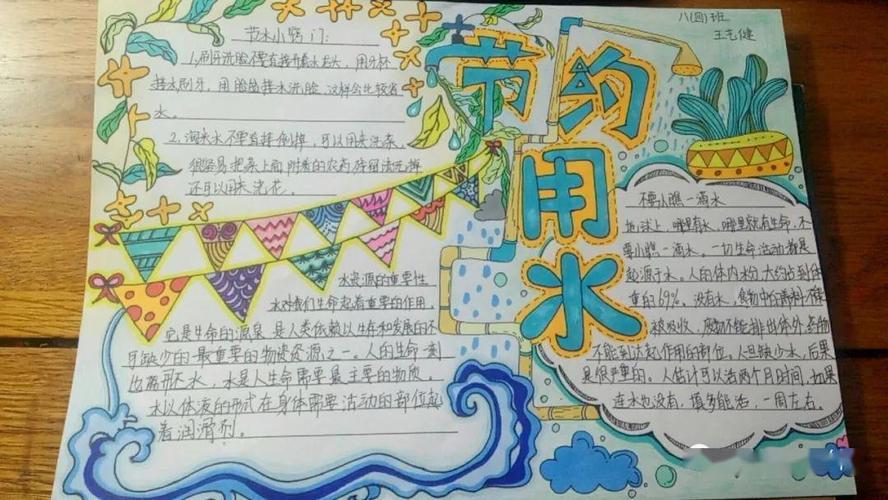 八(四)班
王艺健
节约用水
节水小窍门:
1、刷牙洗脸不要直接开着水龙头，用牙杯
接水刷牙，用脸盆接水洗脸，这样会比较省
水。
2、淘米水不要直接倒掉，可以用来洗菜，
很容易把菜上面附着的农药残留清洗掉
还可以用来浇花。
水资源的重要性
水对我们生命起着重要的作用，
它是生命的源泉，是人类依赖以生存和发展的不
可缺少的最重要的物质资源之一。人的生命一刻
也离不水，水是人生命需要最主要的物质
水以体液的形式在身体需要活动的部位起
着润滑剂。
不要小瞧一滴水
地球上，哪里有水，哪里就有生命，不
要小瞧一滴水。一切生命活动都是
起源于水。人的体内水分，大约占到体
重的69%。没有水，食物中的养料不能
被吸收，废物不能排出体外，药物
不能到达起作用的部位。人旦缺少水，后果
是很严重的。人估计可以活两个月时间，如果
连水也没有，顶多能活一周左右。